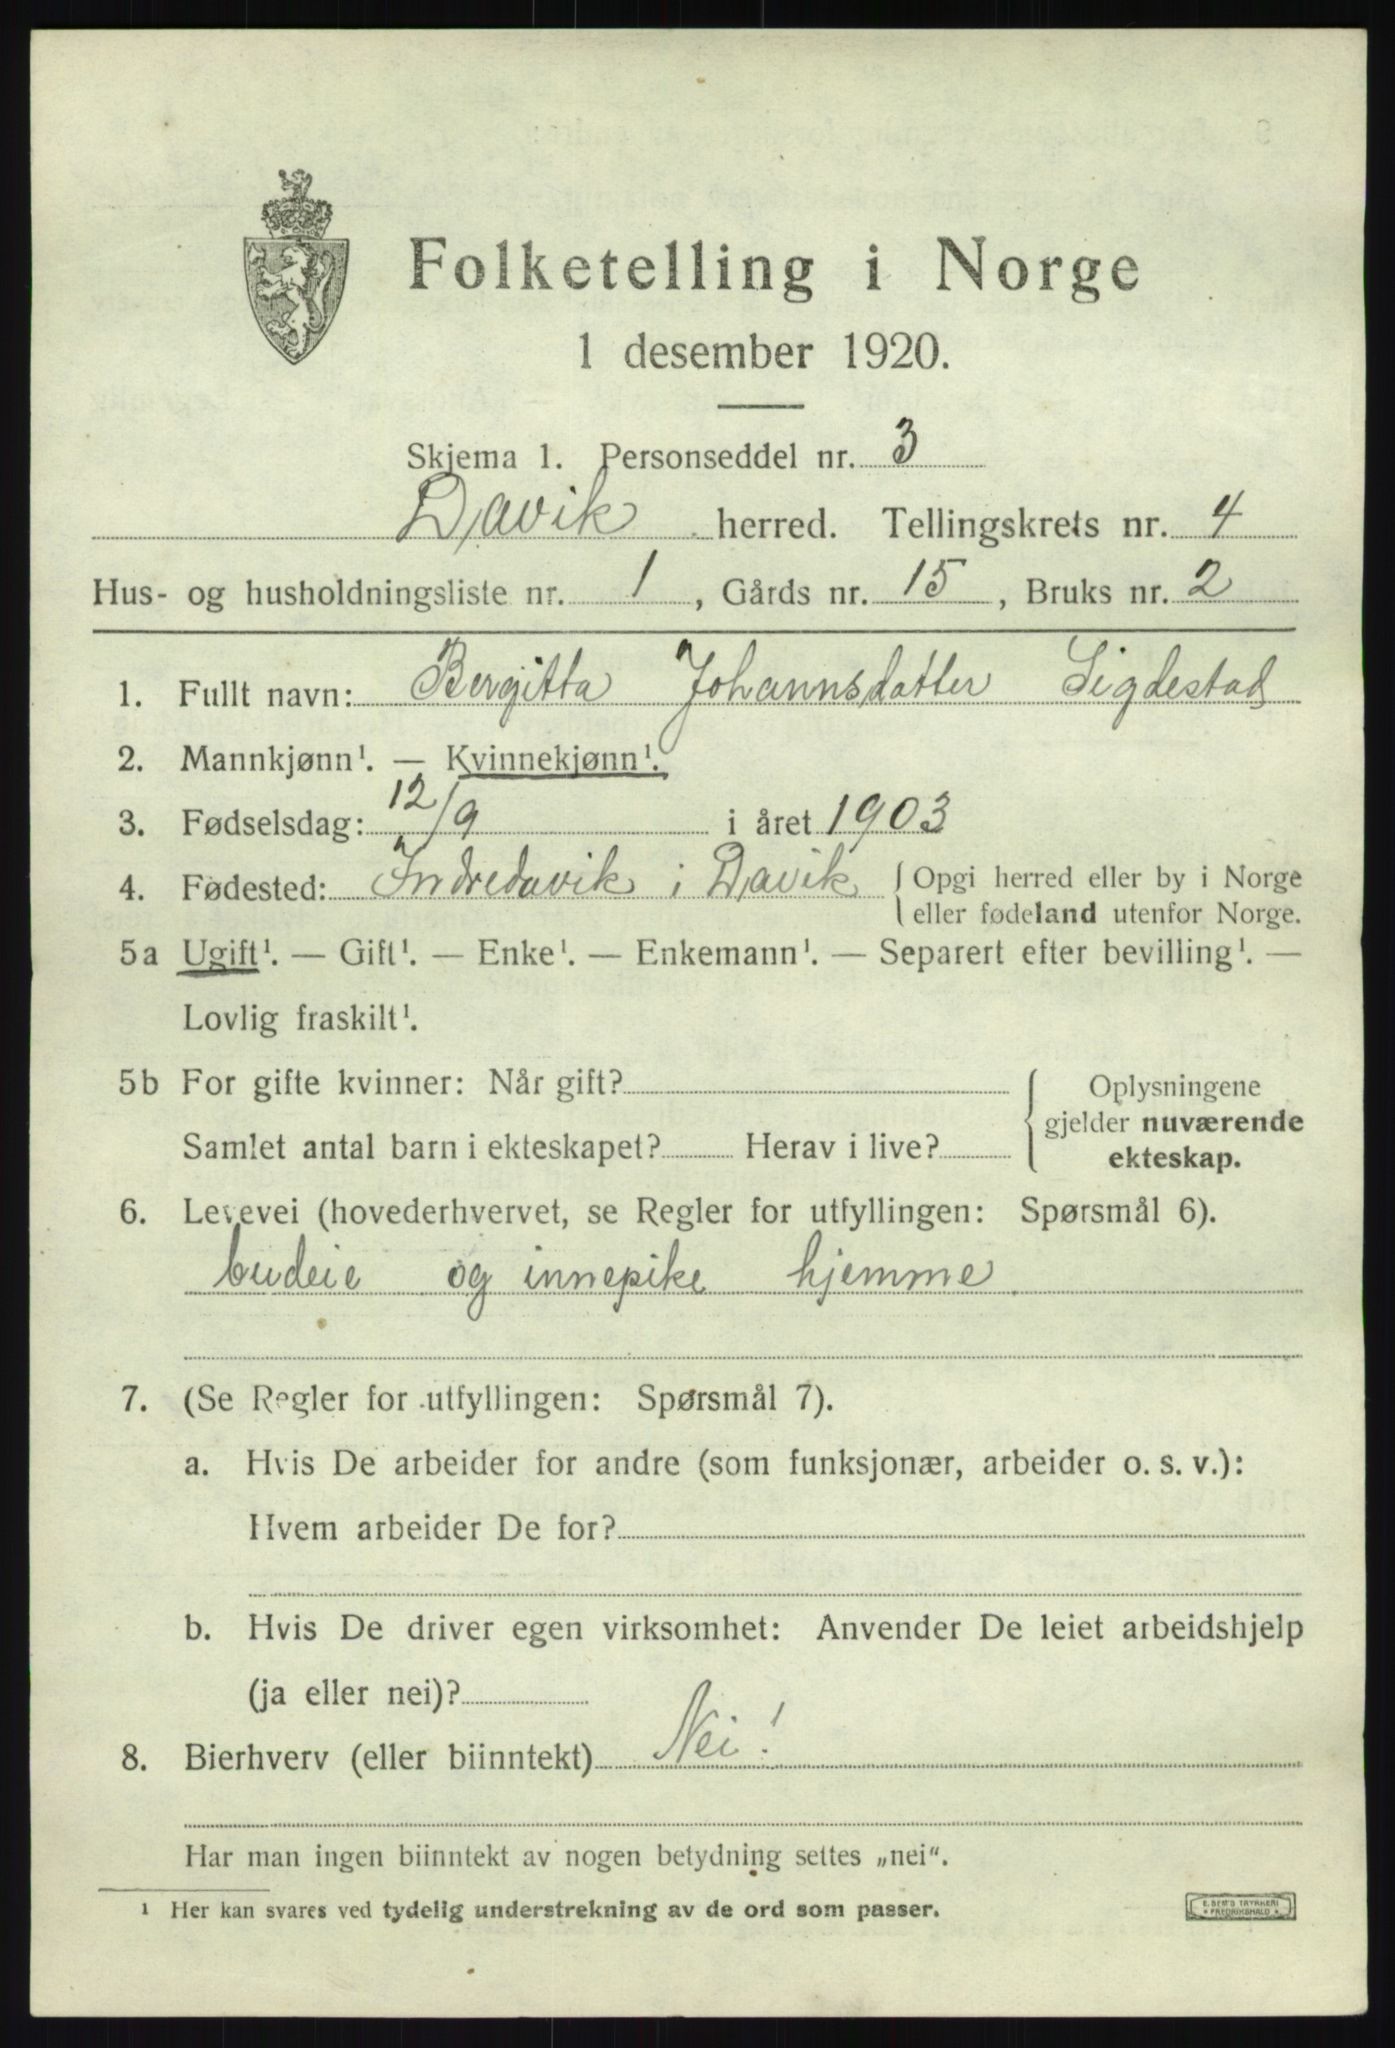 Folketelling i Norge
1 desember 1920.
Skjema 1. Personseddel nr. 3
Davik herred. Tellingskrets nr. 4
Hus- og husholdningsliste nr. 1, Gårds nr. 15, Bruks nr. 2
1. Fullt navn: Bergitta Johannsdatter Sigdestad
2. Mannkjønn¹. — Kvinnekjønn¹.
3. Fødselsdag: 12/9 i året 1903
4. Fødested: Indredavik i Davik { Opgi herred eller by i Norge
eller fødeland utenfor Norge.
5a Ugift¹. — Gift¹. — Enke¹. — Enkemann¹. — Separert efter bevilling¹. —
Lovlig fraskilt¹.
5b For gifte kvinner: Når gift? { Oplysningene
gjelder nuværende
Samlet antal barn i ekteskapet? Herav i live? ekteskap.
6. Levevei (hovederhvervet, se Regler for utfyllingen: Spørsmål 6).
budeie og innepike hjemme
7. (Se Regler for utfyllingen: Spørsmål 7).
a. Hvis De arbeider for andre (som funksjonær, arbeider o. s. v.):
Hvem arbeider De for?
b. Hvis De driver egen virksomhet: Anvender De leiet arbeidshjelp
(ja eller nei)?
8. Bierhverv (eller biinntekt) Nei!
Har man ingen biinntekt av nogen betydning settes „nei“.
¹ Her kan svares ved tydelig understrekning av de ord som passer.
E. SEM'S TRYKKERI
FREDRIKSHALD